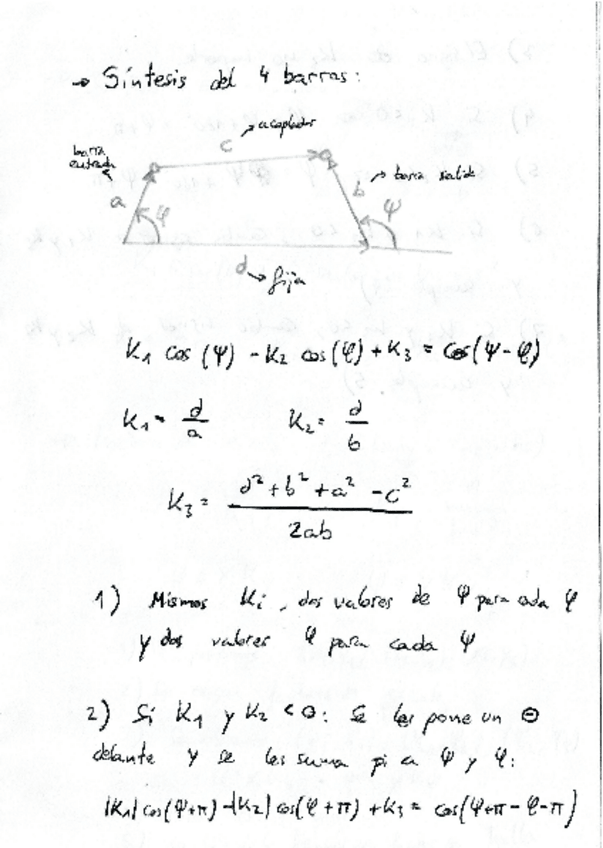 → Síntesis del 4 barras:
c → acoplador
barra
entrada
a
φ
b → barra salida
ψ
d → fija
K1 cos (ψ) - K2 cos(φ) + K3 = cos(ψ-φ)
K1 = d/a K2 = d/b
K3 = (d² + b² + a² - c²)/2ab
1) Mismos Ki, dos valores de ψ para cada φ
y dos valores φ para cada ψ
2) Si K1 y K2 < 0: Se les pone un ⊖
delante y se les suma pi a ψ y φ:
|K1| cos(ψ+π) - |K2| cos(φ+π) + K3 = cos(ψ+π-φ-π)